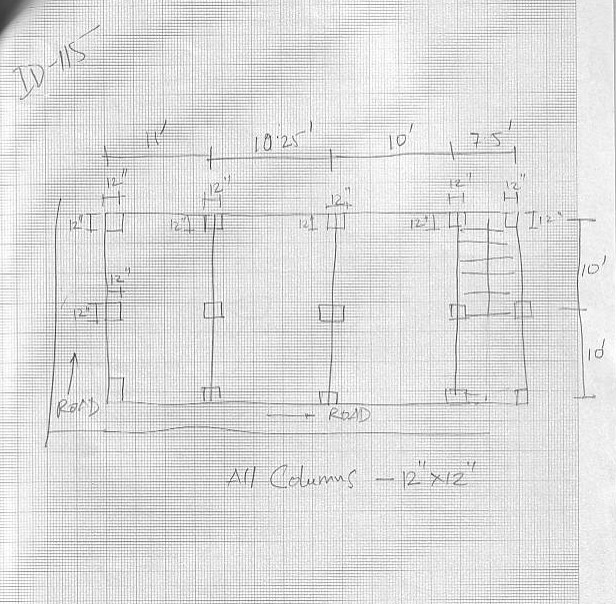 ID-115
11' 10.25' 10' 7.5'
12" 12" 12" 12" 12"
12" 12" 12" 12" 12"
10'
12"
12"
10'
ROAD
ROAD
All Columns - 12"x12"